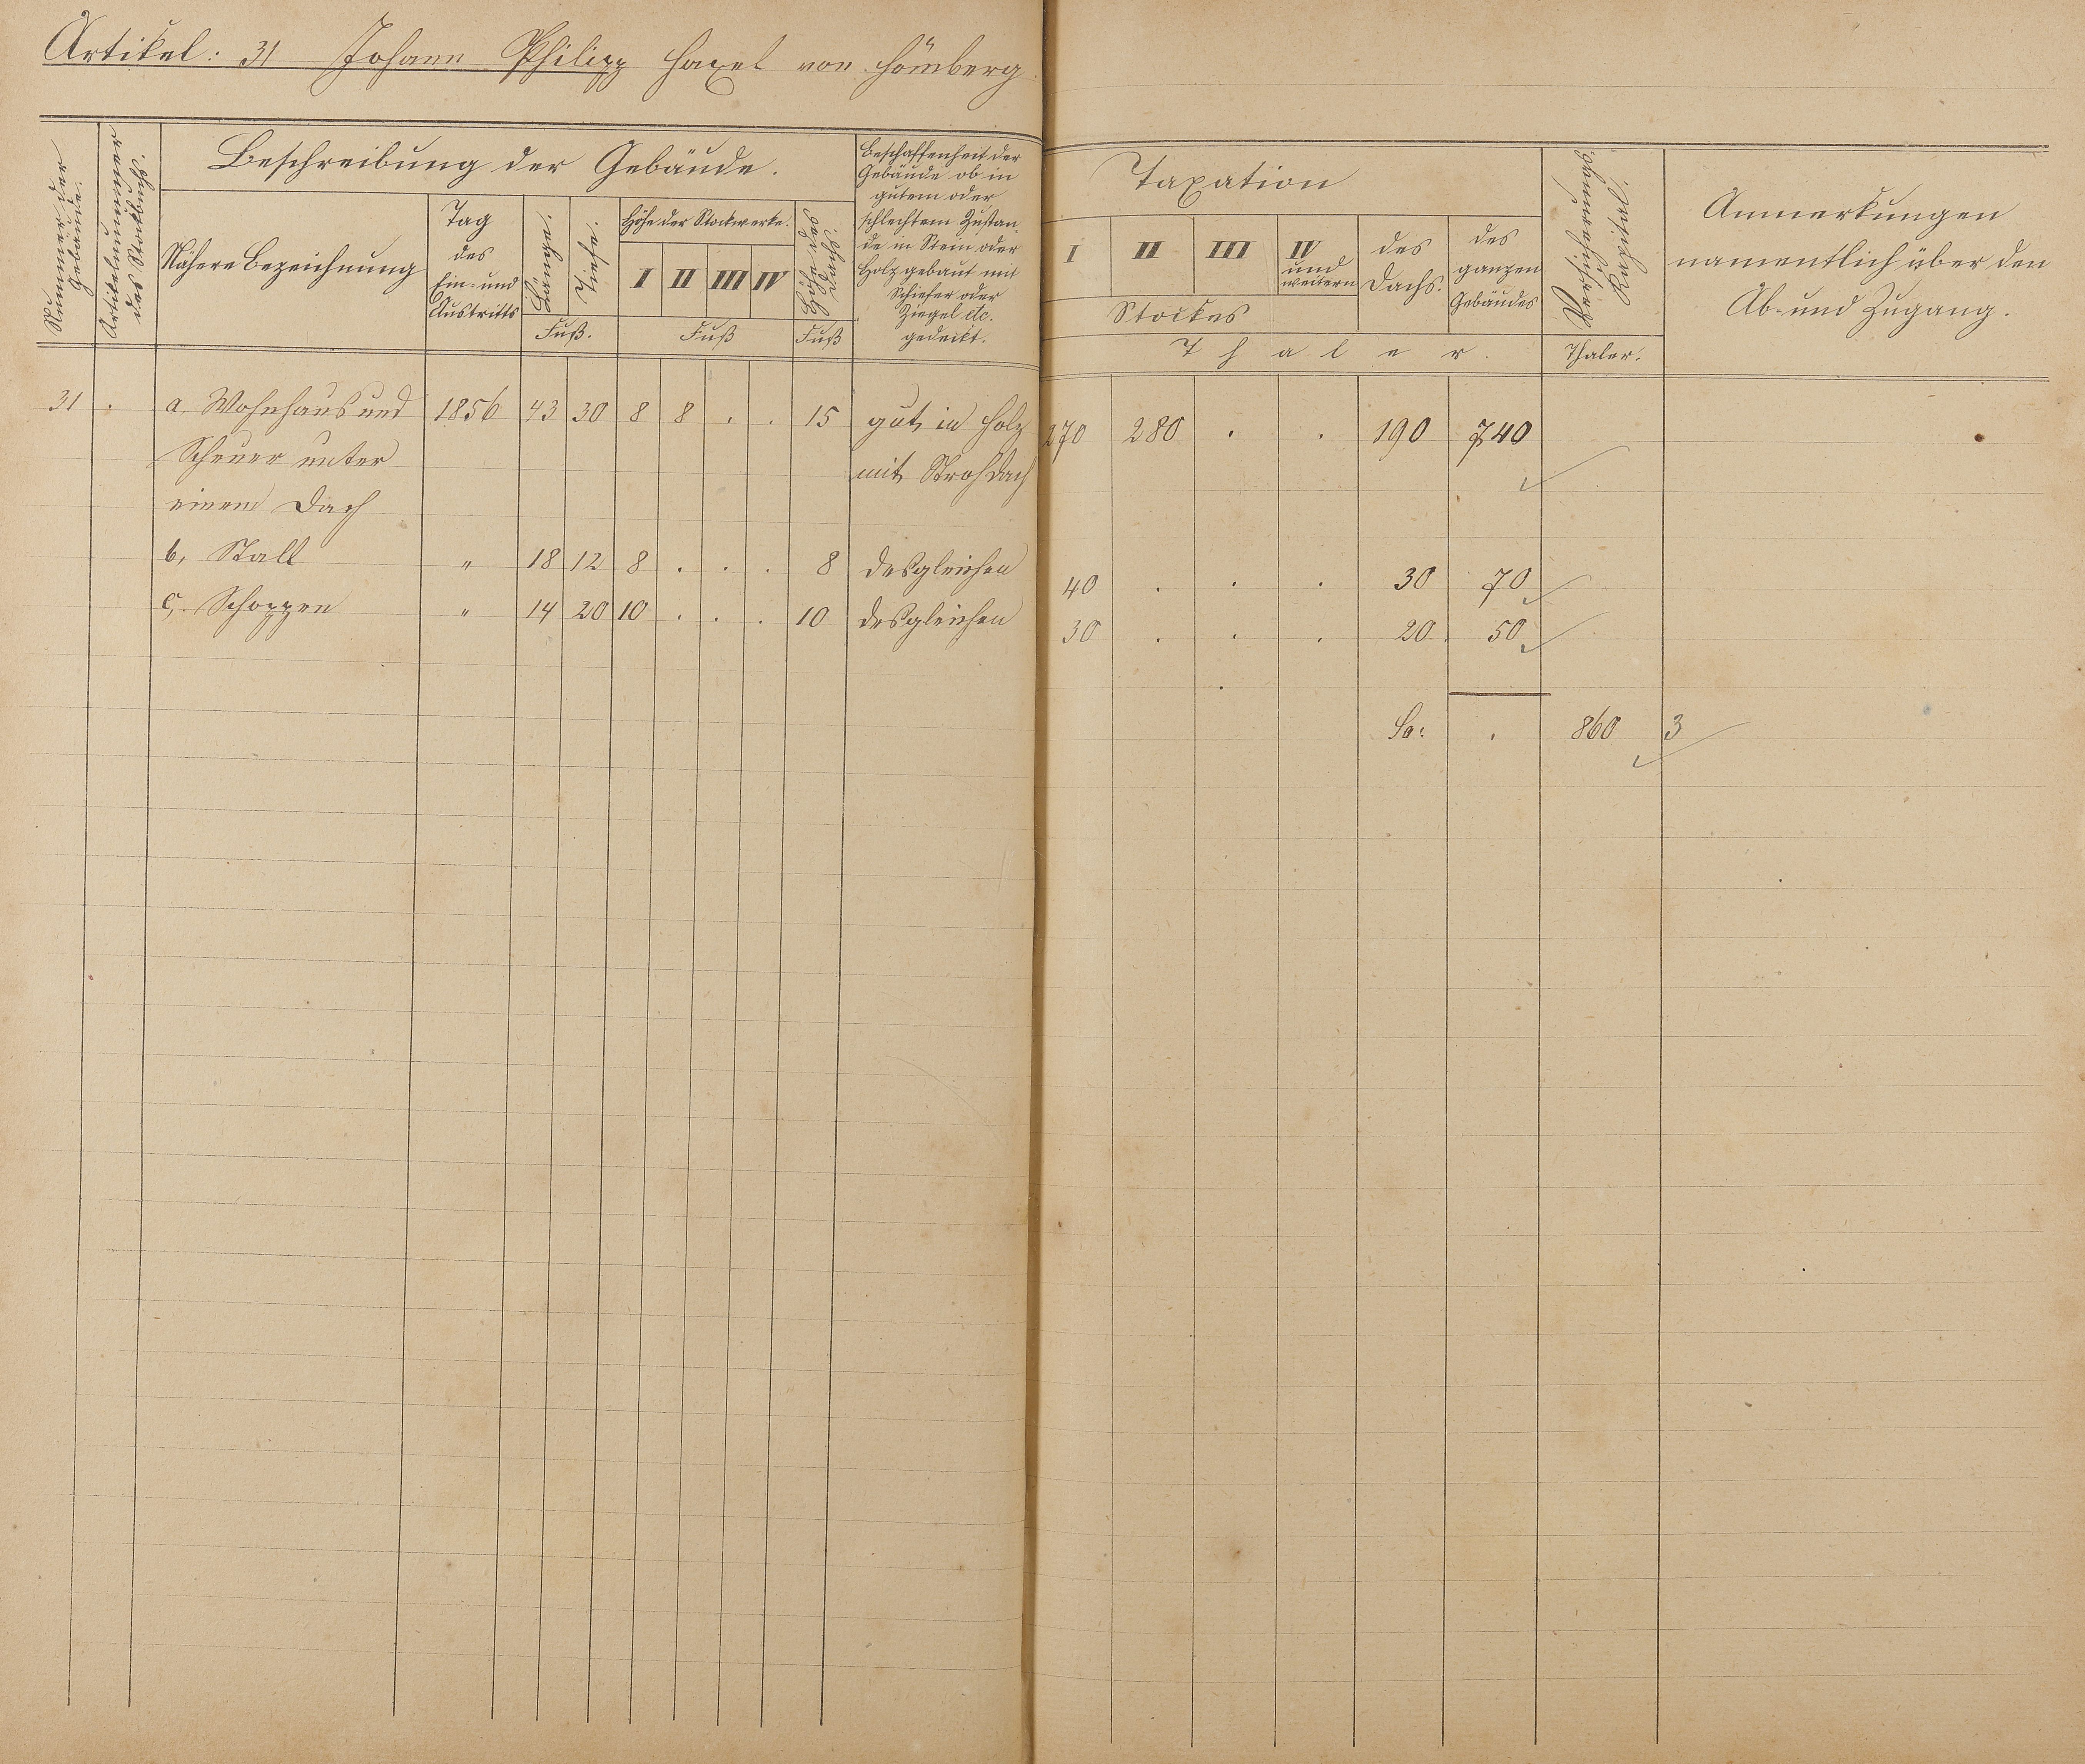 Artikel: 31 Johann Philipp Haxel von Hömberg
Nummer der Gebäude.
Artikelnummer des Stockbuchs.
Beschreibung der Gebäude.
Nähere Bezeichnung
Tag
des
Ein- und
Austritts
Länge.
Tiefe.
Fuß.
Höhe der Stockwerke.
I II III IV
Fuß
Höhe des Dachs.
Fuß
Beschaffenheit der
Gebäude ob in
gutem oder
schlechtem Zustan-
de in Stein oder
Holz gebaut mit
Schiefer oder
Ziegel etc.
gedeckt.
Taxation
I II III IV
und
weitern
Stockes
des
Dachs.
des
ganzen
Gebäudes
Thaler.
Versicherungs
Kapital.
Thaler.
Anmerkungen
namentlich über den
Ab- und Zugang.
31 . a, Wohnhaus und 1856 43 30 8 8 . . 15 gut, in Holz 270 280 . . 190 740
Scheuer unter mit Strohdach
einem Dach
b, Stall " 18 12 8 . . . 8 desgleichen 40 . . . 30 70
c, Schoppen " 14 20 10 . . . 10 desgleichen 30 . . . 20 50
Sa: . 860 3